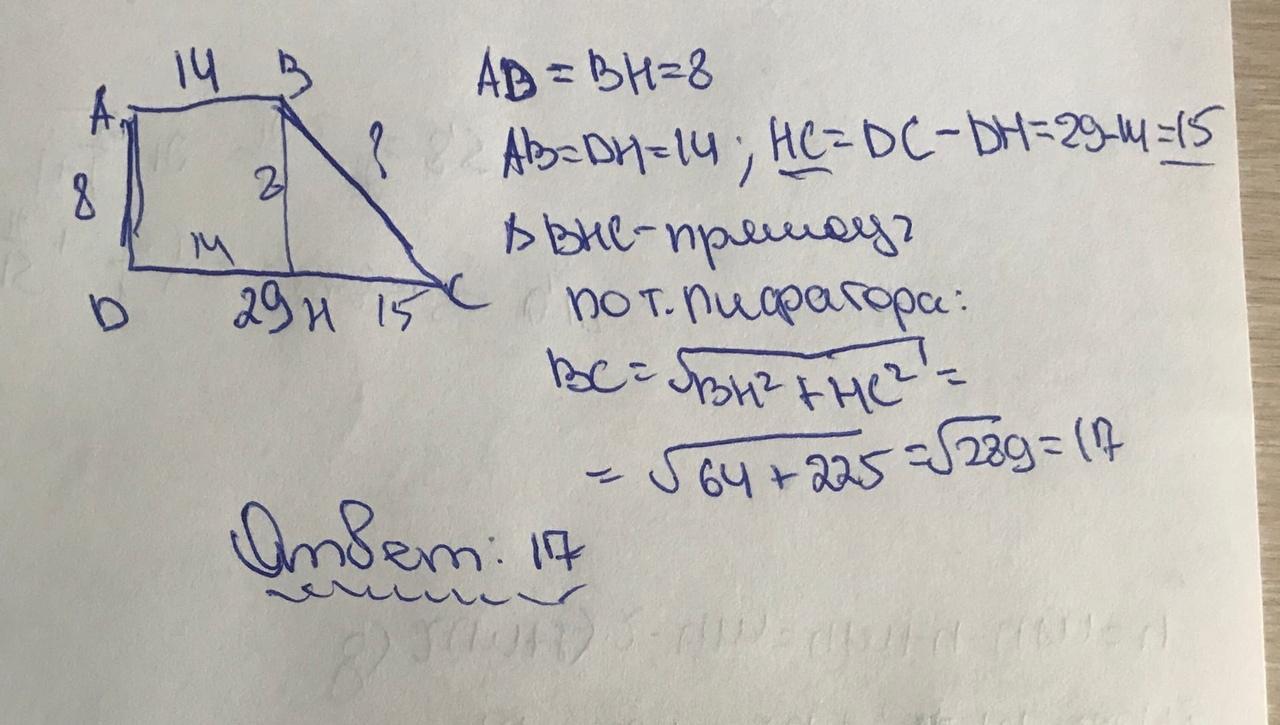 14
A B
8 ? 
14
D 29 H 15 C
AB = BH = 8
AB = DH = 14 ; HC = DC - DH = 29-14 = 15
Δ BHC - прямоуг
по т. Пифагора:
BC = √BH² + HC² =
= √64 + 225 = √289 = 17
Ответ: 17